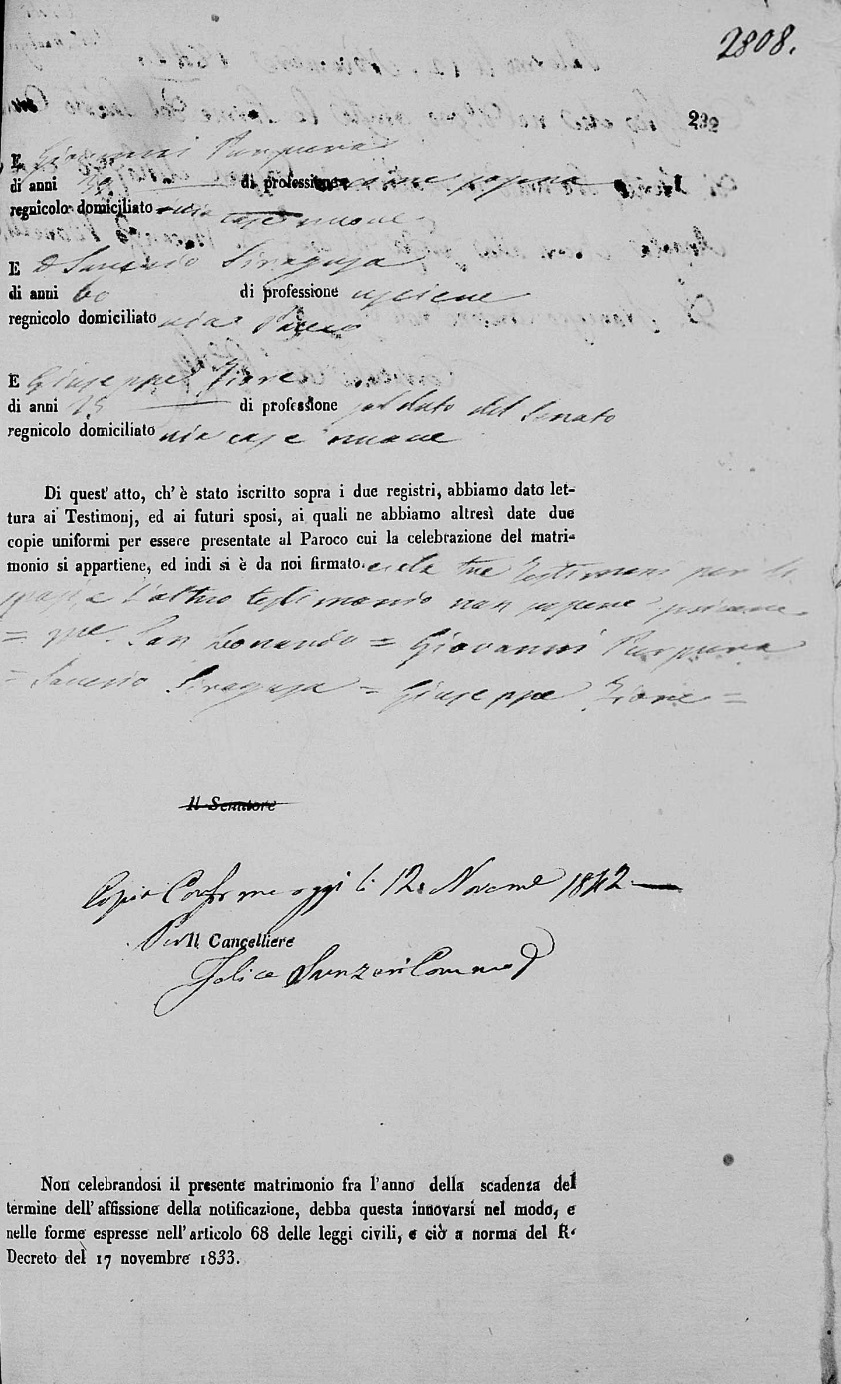 2808.
232
E Giovanni Purpura
di anni di professione
regnicolo domiciliato via case nuove
E Saverio Siragusa
di anni 60 di professione usciere
regnicolo domiciliato via
E Giuseppe Fiore
di anni di professione soldato del Senato
regnicolo domiciliato via case nuove
Di quest' atto, ch' è stato iscritto sopra i due registri, abbiamo dato let-
tura ai Testimonj, ed ai futuri sposi, ai quali ne abbiamo altresì date due
copie uniformi per essere presentate al Paroco cui la celebrazione del matri-
monio si appartiene, ed indi si è da noi firmato. tre Testimoni
l'altro testimonio non
= San Leonardo = Giovanni Purpura
= Saverio Siragusa = Giuseppe Fiore =
Il Senatore
Copia Conforme oggi li 12. Novembre 1842
Per Il Cancelliere
Felice
Non celebrandosi il presente matrimonio fra l'anno della scadenza del
termine dell' affissione della notificazione, debba questa innovarsi nel modo, e
nelle forme espresse nell' articolo 68 delle leggi civili, e ciò a norma del R.
Decreto del 17 novembre 1833.